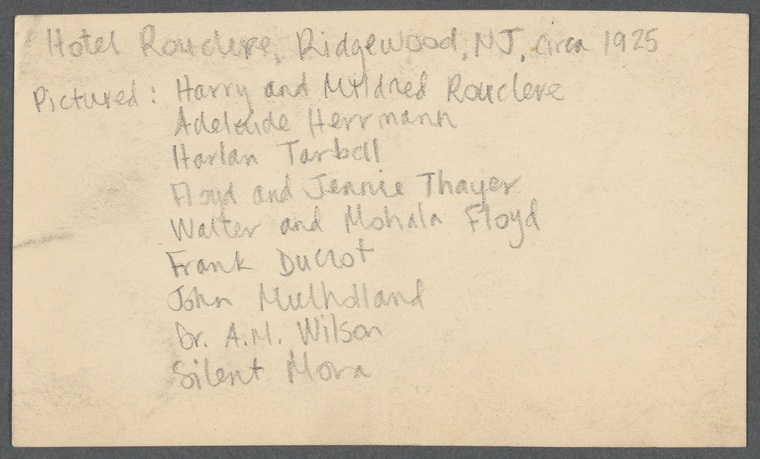 Hotel Rouclere, Ridgewood, NJ, circa 1925
Pictured: Harry and Mildred Rouclere
Adelaide Herrmann
Harlan Tarbell
Floyd and Jennie Thayer
Walter and Mohala Floyd
Frank Ducrot
John Mulholland
Dr. A.M. Wilson
Silent Mora